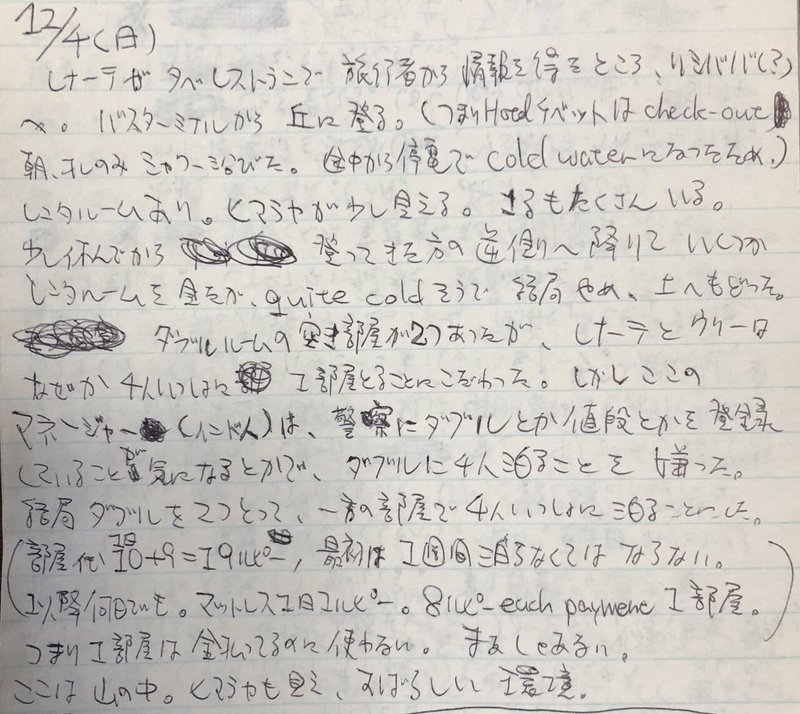 12/4(日)
レナーテがタベレストランで旅行者から情報を得たところ、リシババ(?)
へ。バスターミナルから丘に登る。(つまりHotelチベットはcheck-out
朝、オレのみシャワー浴びた。途中から停電でcold waterになったため。)
レンタルームあり。ヒマラヤが少し見える。さるもたくさんいる。
少し休んでから 登ってきた方の逆側へ降りていくつか
レンタルームを見たが、quite coldそうで結局やめ、上へもどった。
ダブルルームの空き部屋が2つあったが、レナーテとウリーは
なぜか4人いっしょに1部屋とることにこだわった。しかしここの
マネージャー(インド人)は、警察にダブルとか値段とかを登録
していることが気になるとかで、ダブルに4人泊ることを嫌った。
結局ダブルを2つとって、一方の部屋で4人いっしょに泊ることにした。
(部屋代 10+9=19ルピー, 最初は1週間泊らなくてはならない。
以降何日でも。マットレス1日1ルピー。8ルピーeach payment 1部屋。)
つまり1部屋は金払ってるのに使わない。まあしょーがない。
ここは山の中。ヒマラヤも見え、すばらしい環境。